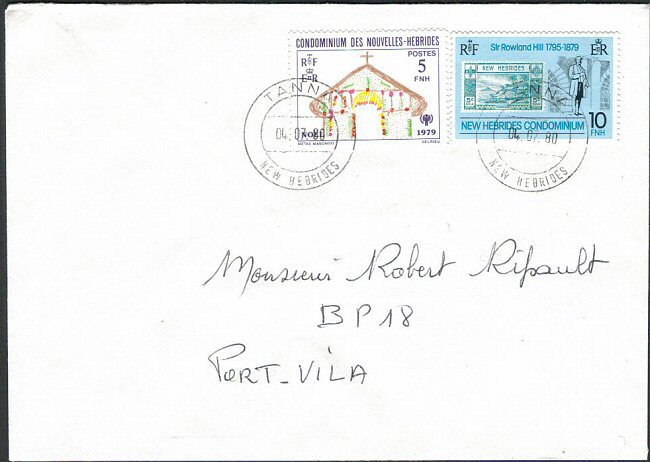 CONDOMINIUM DES NOUVELLES-HEBRIDES
POSTES
RF
5
FNH
ER
NOEL
1979
Sir Rowland Hill 1795-1879
RF
ER
NEW HEBRIDES
NEW HEBRIDES CONDOMINIUM
10
FNH
TANNA
04.07.80
NEW HEBRIDES
TANNA
04.07.80
NEW HEBRIDES
Monsieur Robert Ripault
BP 18
PORT-VILA